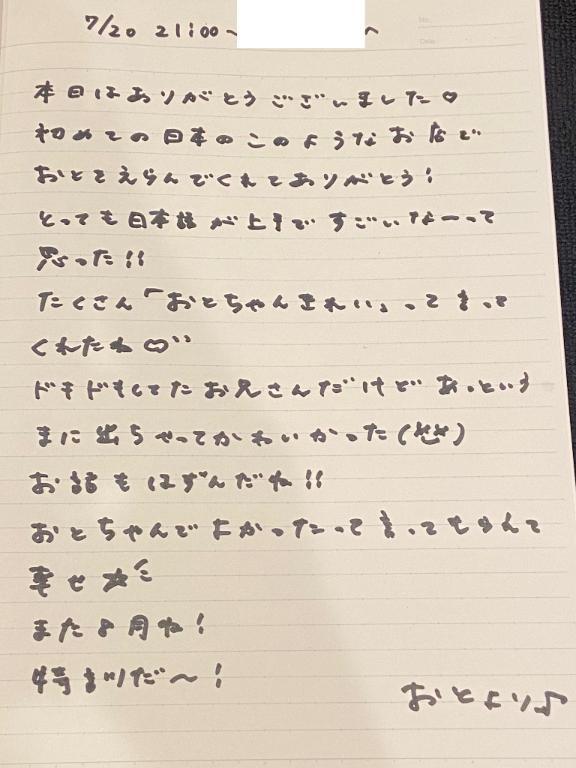 7/20 21:00〜 へ
本日はありがとうございました♡
初めての日本のこのようなお店で
おとをえらんでくれてありがとう!
とっても日本語が上手ですごいなーって
思った!!
たくさん「おとちゃんきれい」って言って
くれたね♡
ドキドキしてたお兄さんだけどあっという
まに出ちゃってかわいかった
お話もはずんだね!!
おとちゃんでよかったって言ってもらえて
幸せ☆
また8月ね!
だ〜!
おとより♪
No.
Date